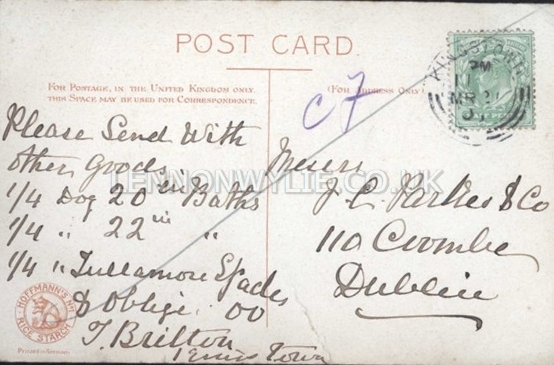 POST CARD.
FOR POSTAGE, IN THE UNITED KINGDOM ONLY,
THIS SPACE MAY BE USED FOR CORRESPONDENCE.
(FOR ADDRESS ONLY)
KINGSTOWN
PM
MR
C7
LENNONWYLIE.CO.UK
Please Send With
Other Goods
1/4 Doz 20 in Baths
1/4 " 22 in "
1/4 " Tullamore Spades
& Oblige
T. Britton
Kingstown
Messrs
J. C. Parkes & Co
110 Coombe
Dublin
HOFFMANN'S
RICE STARCH